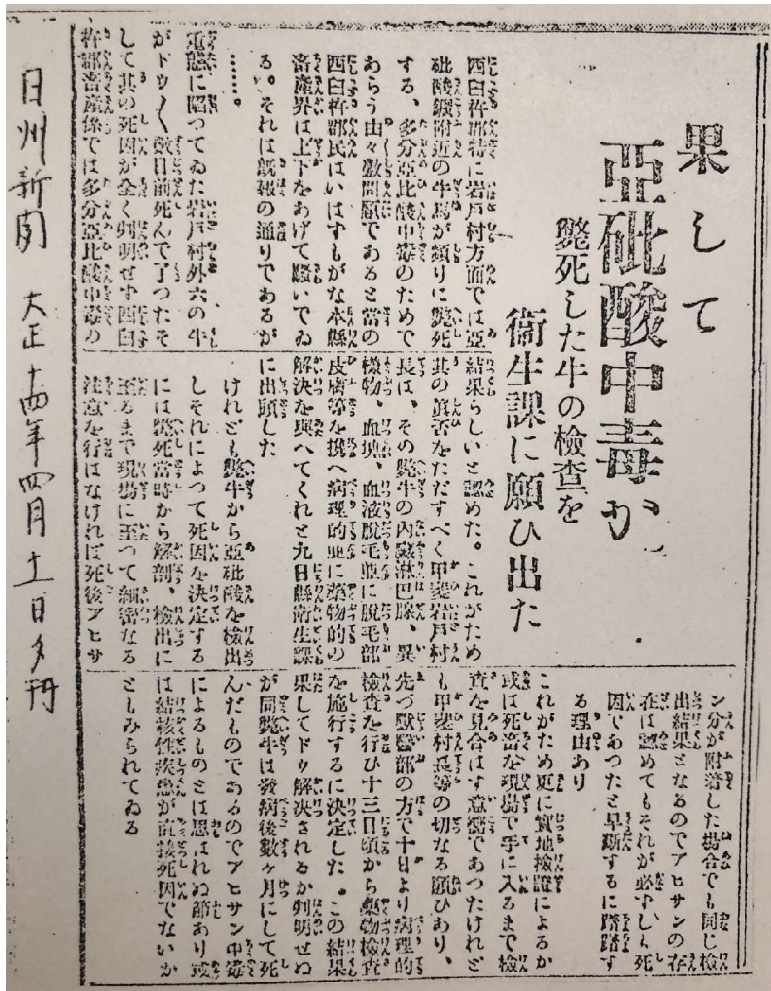 果して
亞砒酸中毒か
斃死した牛の檢査を
衞生課に願ひ出た
西臼杵郡特に岩戸村方面では亞
砒酸鍛附近の牛馬が頻りに斃死
する、多分亞比酸中毒のためで
あらう由々敷問題であると當の
西臼杵郡民はいはずもがな本縣
畜産界は上下をあげて騷いでゐ
る。それは旣報の通りであるが
……。
重態に陷つてゐた岩戸村外六の牛
がドウ〳〵數日前死んで了つたそ
して其の死因が全く判明せず西臼
杵郡畜産係では多分亞比酸中毒の
結果らしいと認めた。これがため
其の眞否をただすべく甲斐岩戸村
長は、その斃牛の內臟淋巴腺、異
樣物、血塊、血液脫毛並に脫毛部
皮膚等を携へ病理的並に藥物的の
解決を與へてくれと九日縣衞生課
に出頭した
けれども斃牛から亞砒酸を檢出
しそれによつて死因を決定する
には斃死當時から解剖、檢出に
至るまで現場に至つて細密なる
注意を行はなければ死後アヒサ
ン分が附着した場合でも同じ檢
出結果となるのでアヒサンの存
在は認めてもそれが必ずしも死
因であつたと早斷するに躊躇す
る理由あり
これがため更に實地檢證によるか
或は死畜を現場で手に入るまで檢
査を見合はす意嚮であつたけれど
も甲斐村長等の切なる願ひあり、
先づ獸醫部の方で十日より病理的
檢査を行ひ十三日頃から藥物檢査
を施行するに決定した。この結果
果してドウ解決されるか判明せぬ
が同斃牛は發病後數ヶ月にして死
んだものであるのでアヒサン中毒
によるものとは思はれぬ節あり或
は結核性疾患が直接死因でないか
ともみられてゐる
日州新聞 大正十四年四月十一日夕刊